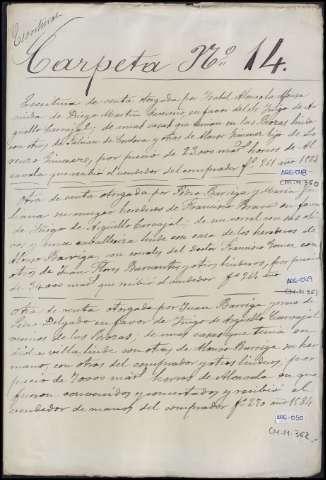 Escrituras
Carpeta Nº 14.
Escritura de venta otorgada por Isabel Alvarez
viuda de Diego Martin en favor de Diego de Ar-
guello Carvajal; de unas casas que tienen en las Brozas linde
con otras de Catalina de Cordova y otras de Alonso Gimenez hijo de Lo-
renzo Gimenez, por precio de 22.000 marˢ horros de Al-
cavala que recibió el vendedor del comprador fº 261 año 1582
AGE-048
CM.M. 360
Otra de venta otorgada por Pedro Barriga y María
su muger herederos de Francisco Bravo en favor
de Diego de Arguello Carvajal; de un corral con sus
y linde con casa de los herederos de
Alonso Barriga, con corrales del doctor Francisco Gomez, con
otros de Juan Flores Barrantes y otros linderos, por precio
de 94.000 marˢ que recibió el vendedor fº 264 año
AGE-049
CM.M. 361
Otra de venta otorgada por Juan Barriga yerno de
Pero Delgado en favor de Diego de Arguello Carvajal
vecinos de las Brozas, de unas casas que tenia en
dicha villa, linde con otras de Alonso Barriga su her-
mano, con otras del comprador y otros linderos, por
precio de 7.000 marˢ horros de Alcavala en que
fueron convenidos y concertados y recibió el
vendedor de manos del comprador fº 270 año 1584
AGE-050
CM.M. 362